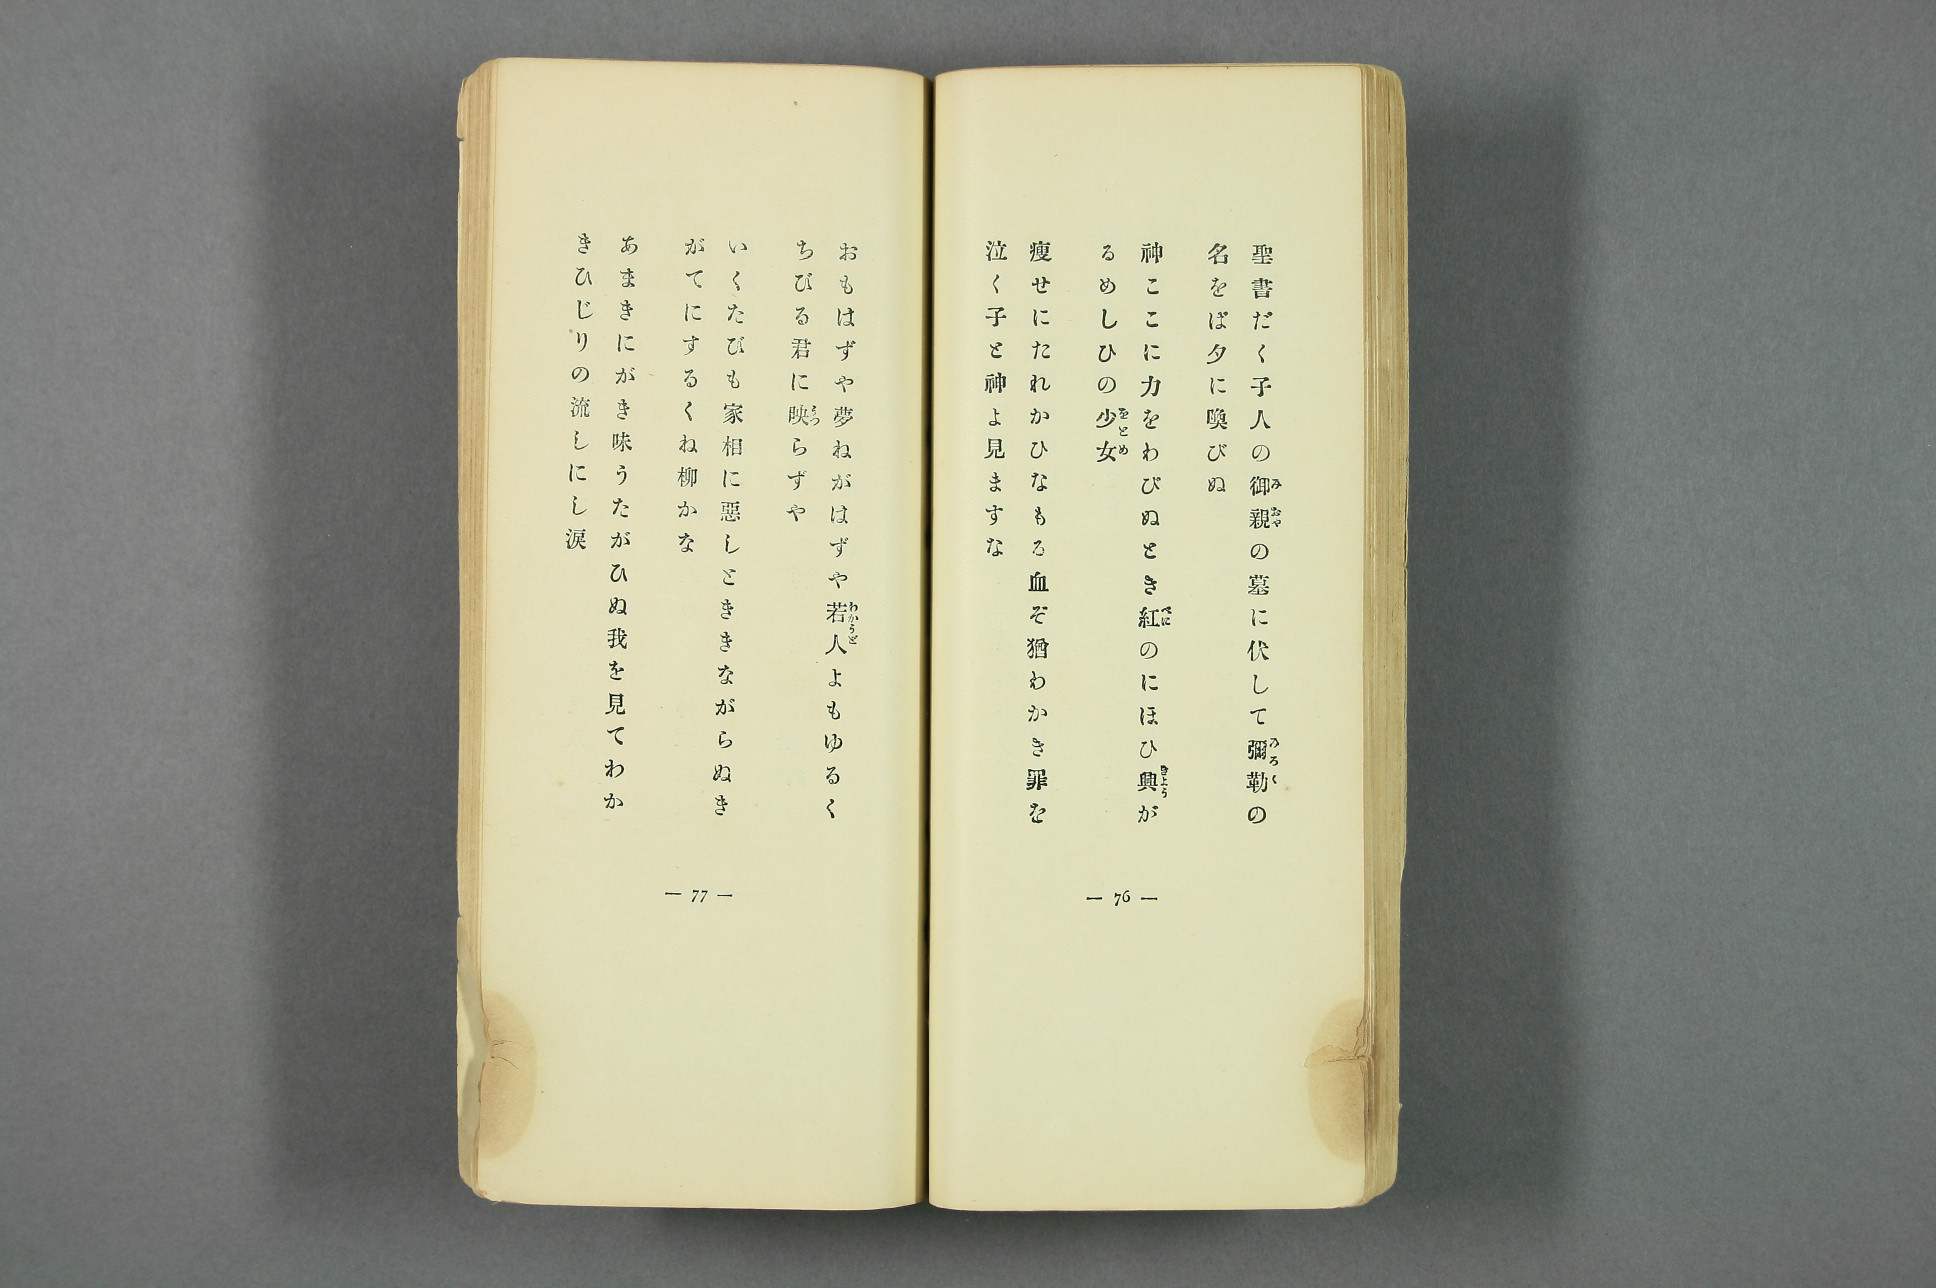 聖書だく子人の御親の墓に伏して彌勒の
名をば夕に喚びぬ
神ここに力をわびぬとき紅のにほひ興が
るめしひの少女
痩せにたれかひなもる血ぞ猶わかき罪を
泣く子と神よ見ますな
— 76 —
おもはずや夢ねがはずや若人よもゆるく
ちびる君に映らずや
いくたびも家相に惡しとききながらぬき
がてにするくね柳かな
あまきにがき味うたがひぬ我を見てわか
きひじりの流しにし涙
— 77 —